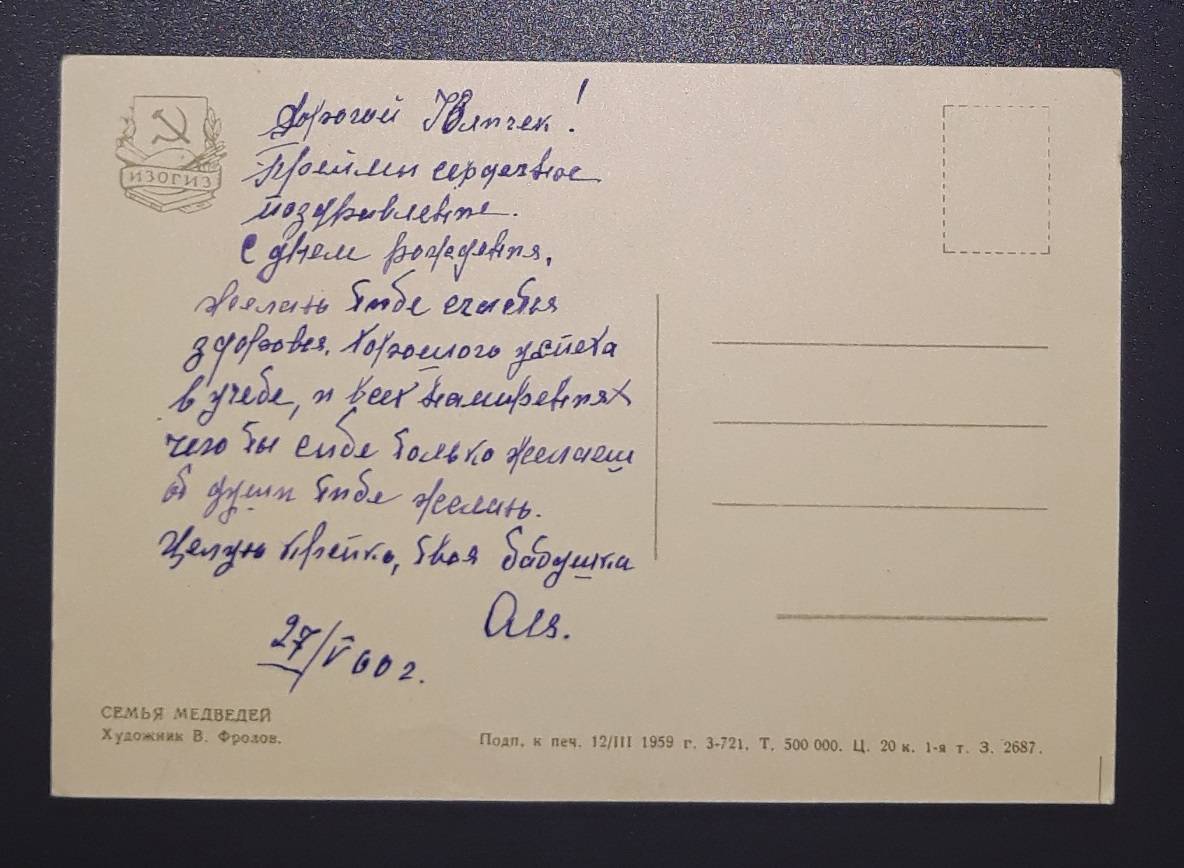 ИЗОГИЗ
Дорогой Юличек!
Прийми сердечное
поздравление.
С днем рождения,
Желаю тибе счастья
здоровья, хорошого успеха
в учебе, и всех намирениях
чего ты сибе только желаеш
от души тибе желаю.
Целую крепко, твоя бабушка
27/V 60 г.
СЕМЬЯ МЕДВЕДЕЙ
Художник В. Фролов.
Подп. к печ. 12/III 1959 г. З-721. Т. 500 000. Ц. 20 к. 1-я т. З. 2687.